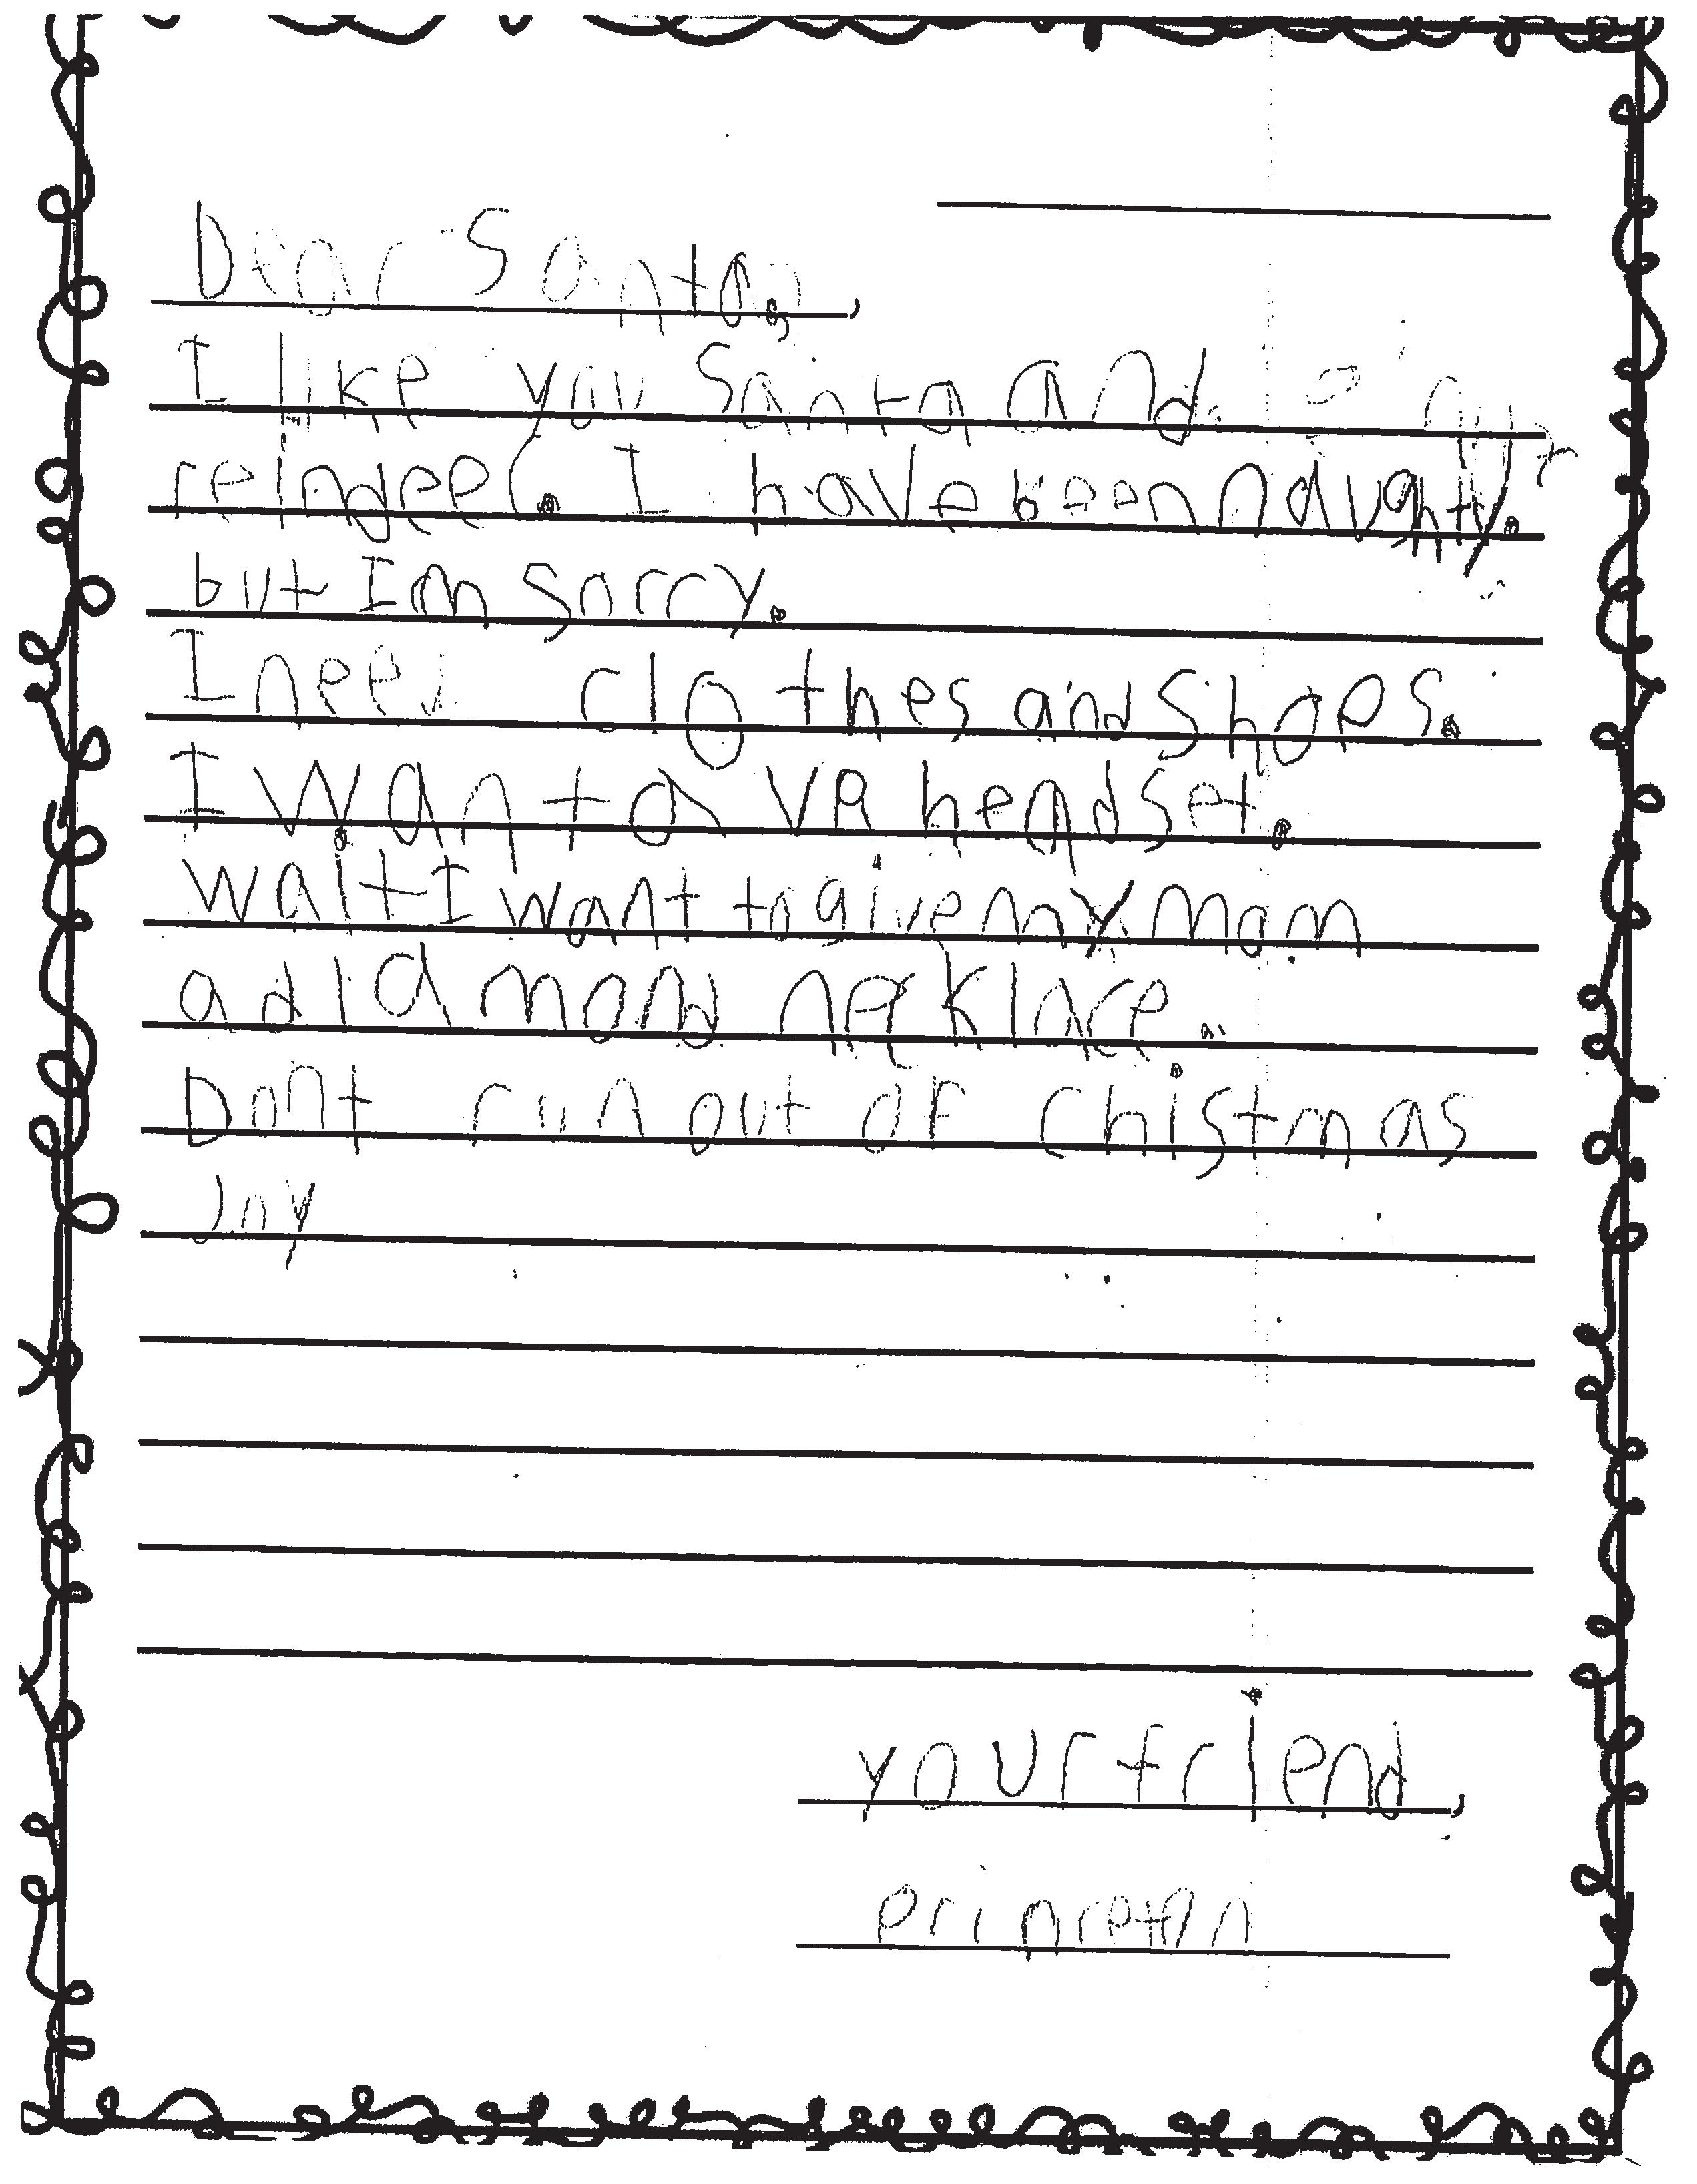 Dear Santa,
I like you Santa and
reindeer. I have been naughty.
but Im sorry.
I need clothes and shoes.
I want a VR headset.
wait I want to give my mom
a diamond necklace.
Dont run out of Chistmas
Joy
your friend,
princeton